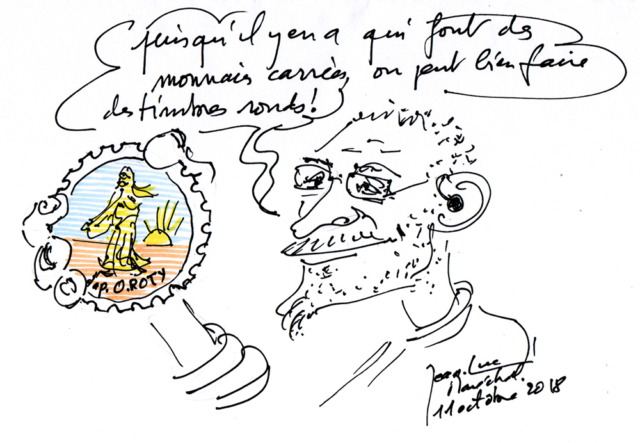 puisqu'il y en a qui font des
monnaies carrées, on peut bien faire
des timbres ronds !
P. O. ROTY
Jean-Luc
Maréchal.
11 octobre 2018